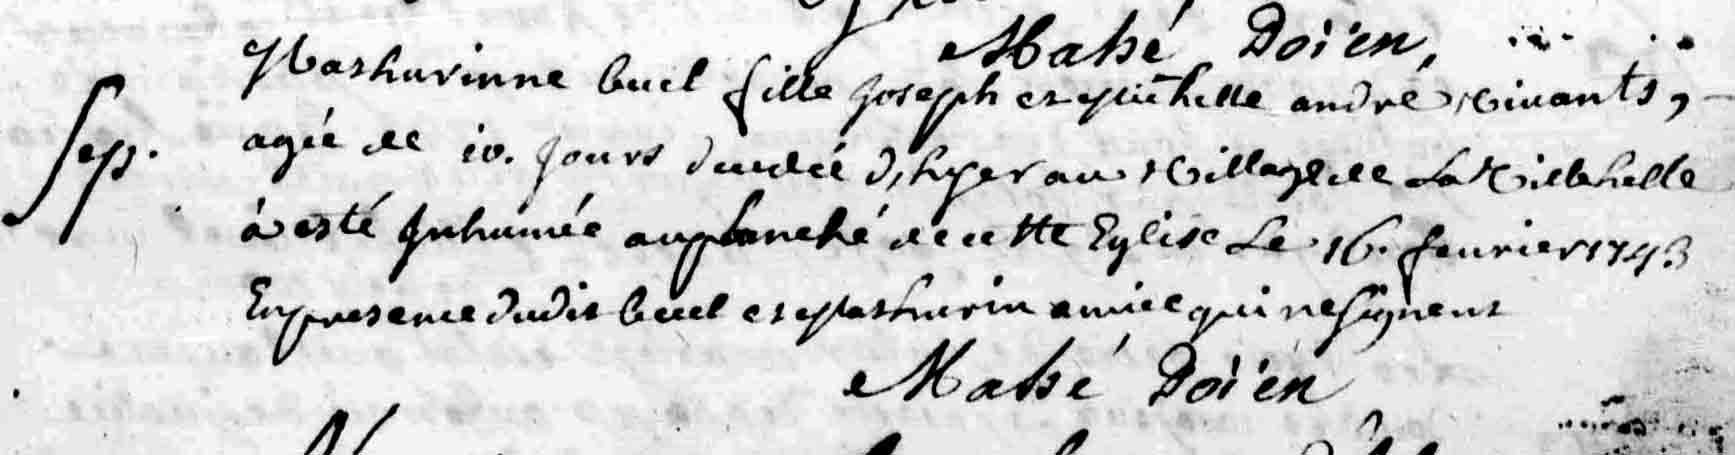 Mahé Doïen,
Mathurinne buel fille Joseph et Michelle andré vivants,
Sep. agée de 10. Jours decedée d'hyer au village de La Villehelle
à esté Inhumée au planché de cette Eglise Le 16. fevrier 1743
En presence dudit buel et Mathurin amice qui ne signent
Mahé Doïen